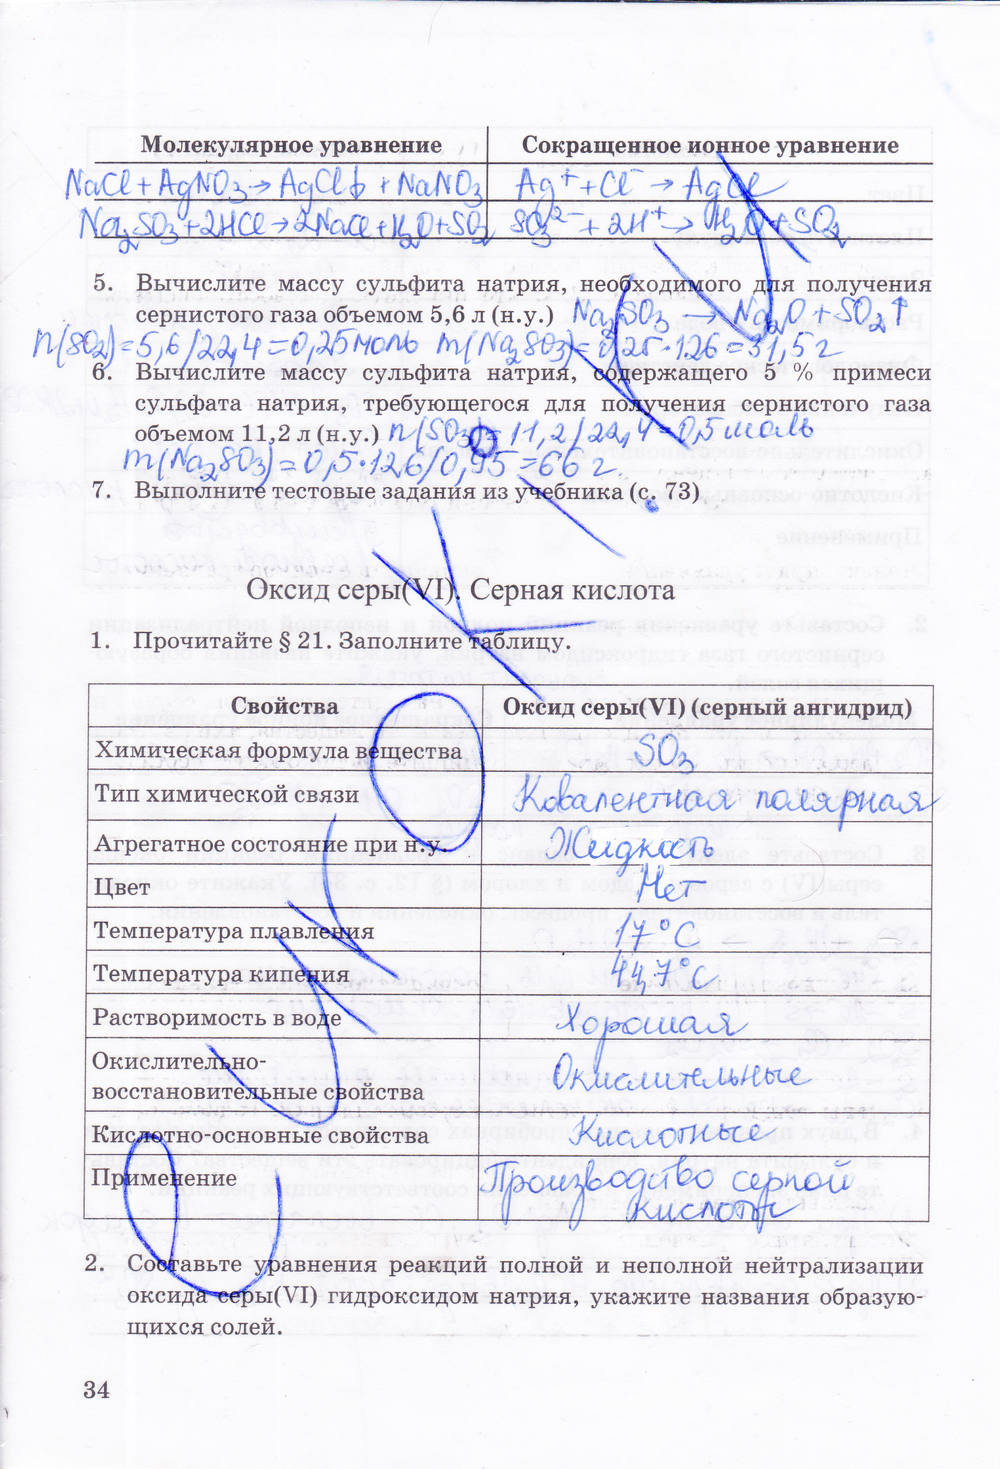 Молекулярное уравнение Сокращенное ионное уравнение
NaCl + AgNO3 → AgCl↓ + NaNO3 Ag+ + Cl- → AgCl
Na2SO3 + 2HCl → 2NaCl + H2O + SO2 SO3 2- + 2H+ → H2O + SO2
5. Вычислите массу сульфита натрия, необходимого для получения
сернистого газа объемом 5,6 л (н.у.) Na2SO3 → Na2O + SO2↑
n(SO2) = 5,6/22,4 = 0,25 моль m(Na2SO3) = 0,25·126 = 31,5 г
6. Вычислите массу сульфита натрия, содержащего 5 % примеси
сульфата натрия, требующегося для получения сернистого газа
объемом 11,2 л (н.у.) n(SO2) = 11,2/22,4 = 0,5 моль
m(Na2SO3) = 0,5·126/0,95 = 66 г.
7. Выполните тестовые задания из учебника (с. 73)
Оксид серы(VI). Серная кислота
1. Прочитайте § 21. Заполните таблицу.
Свойства Оксид серы(VI) (серный ангидрид)
Химическая формула вещества SO3
Тип химической связи Ковалентная полярная
Агрегатное состояние при н.у. Жидкость
Цвет Нет
Температура плавления 17°C
Температура кипения 44,7°C
Растворимость в воде Хорошая
Окислительно-
восстановительные свойства Окислительные
Кислотно-основные свойства Кислотные
Применение Производство серной
кислоты
2. Составьте уравнения реакций полной и неполной нейтрализации
оксида серы(VI) гидроксидом натрия, укажите названия образую-
щихся солей.
34